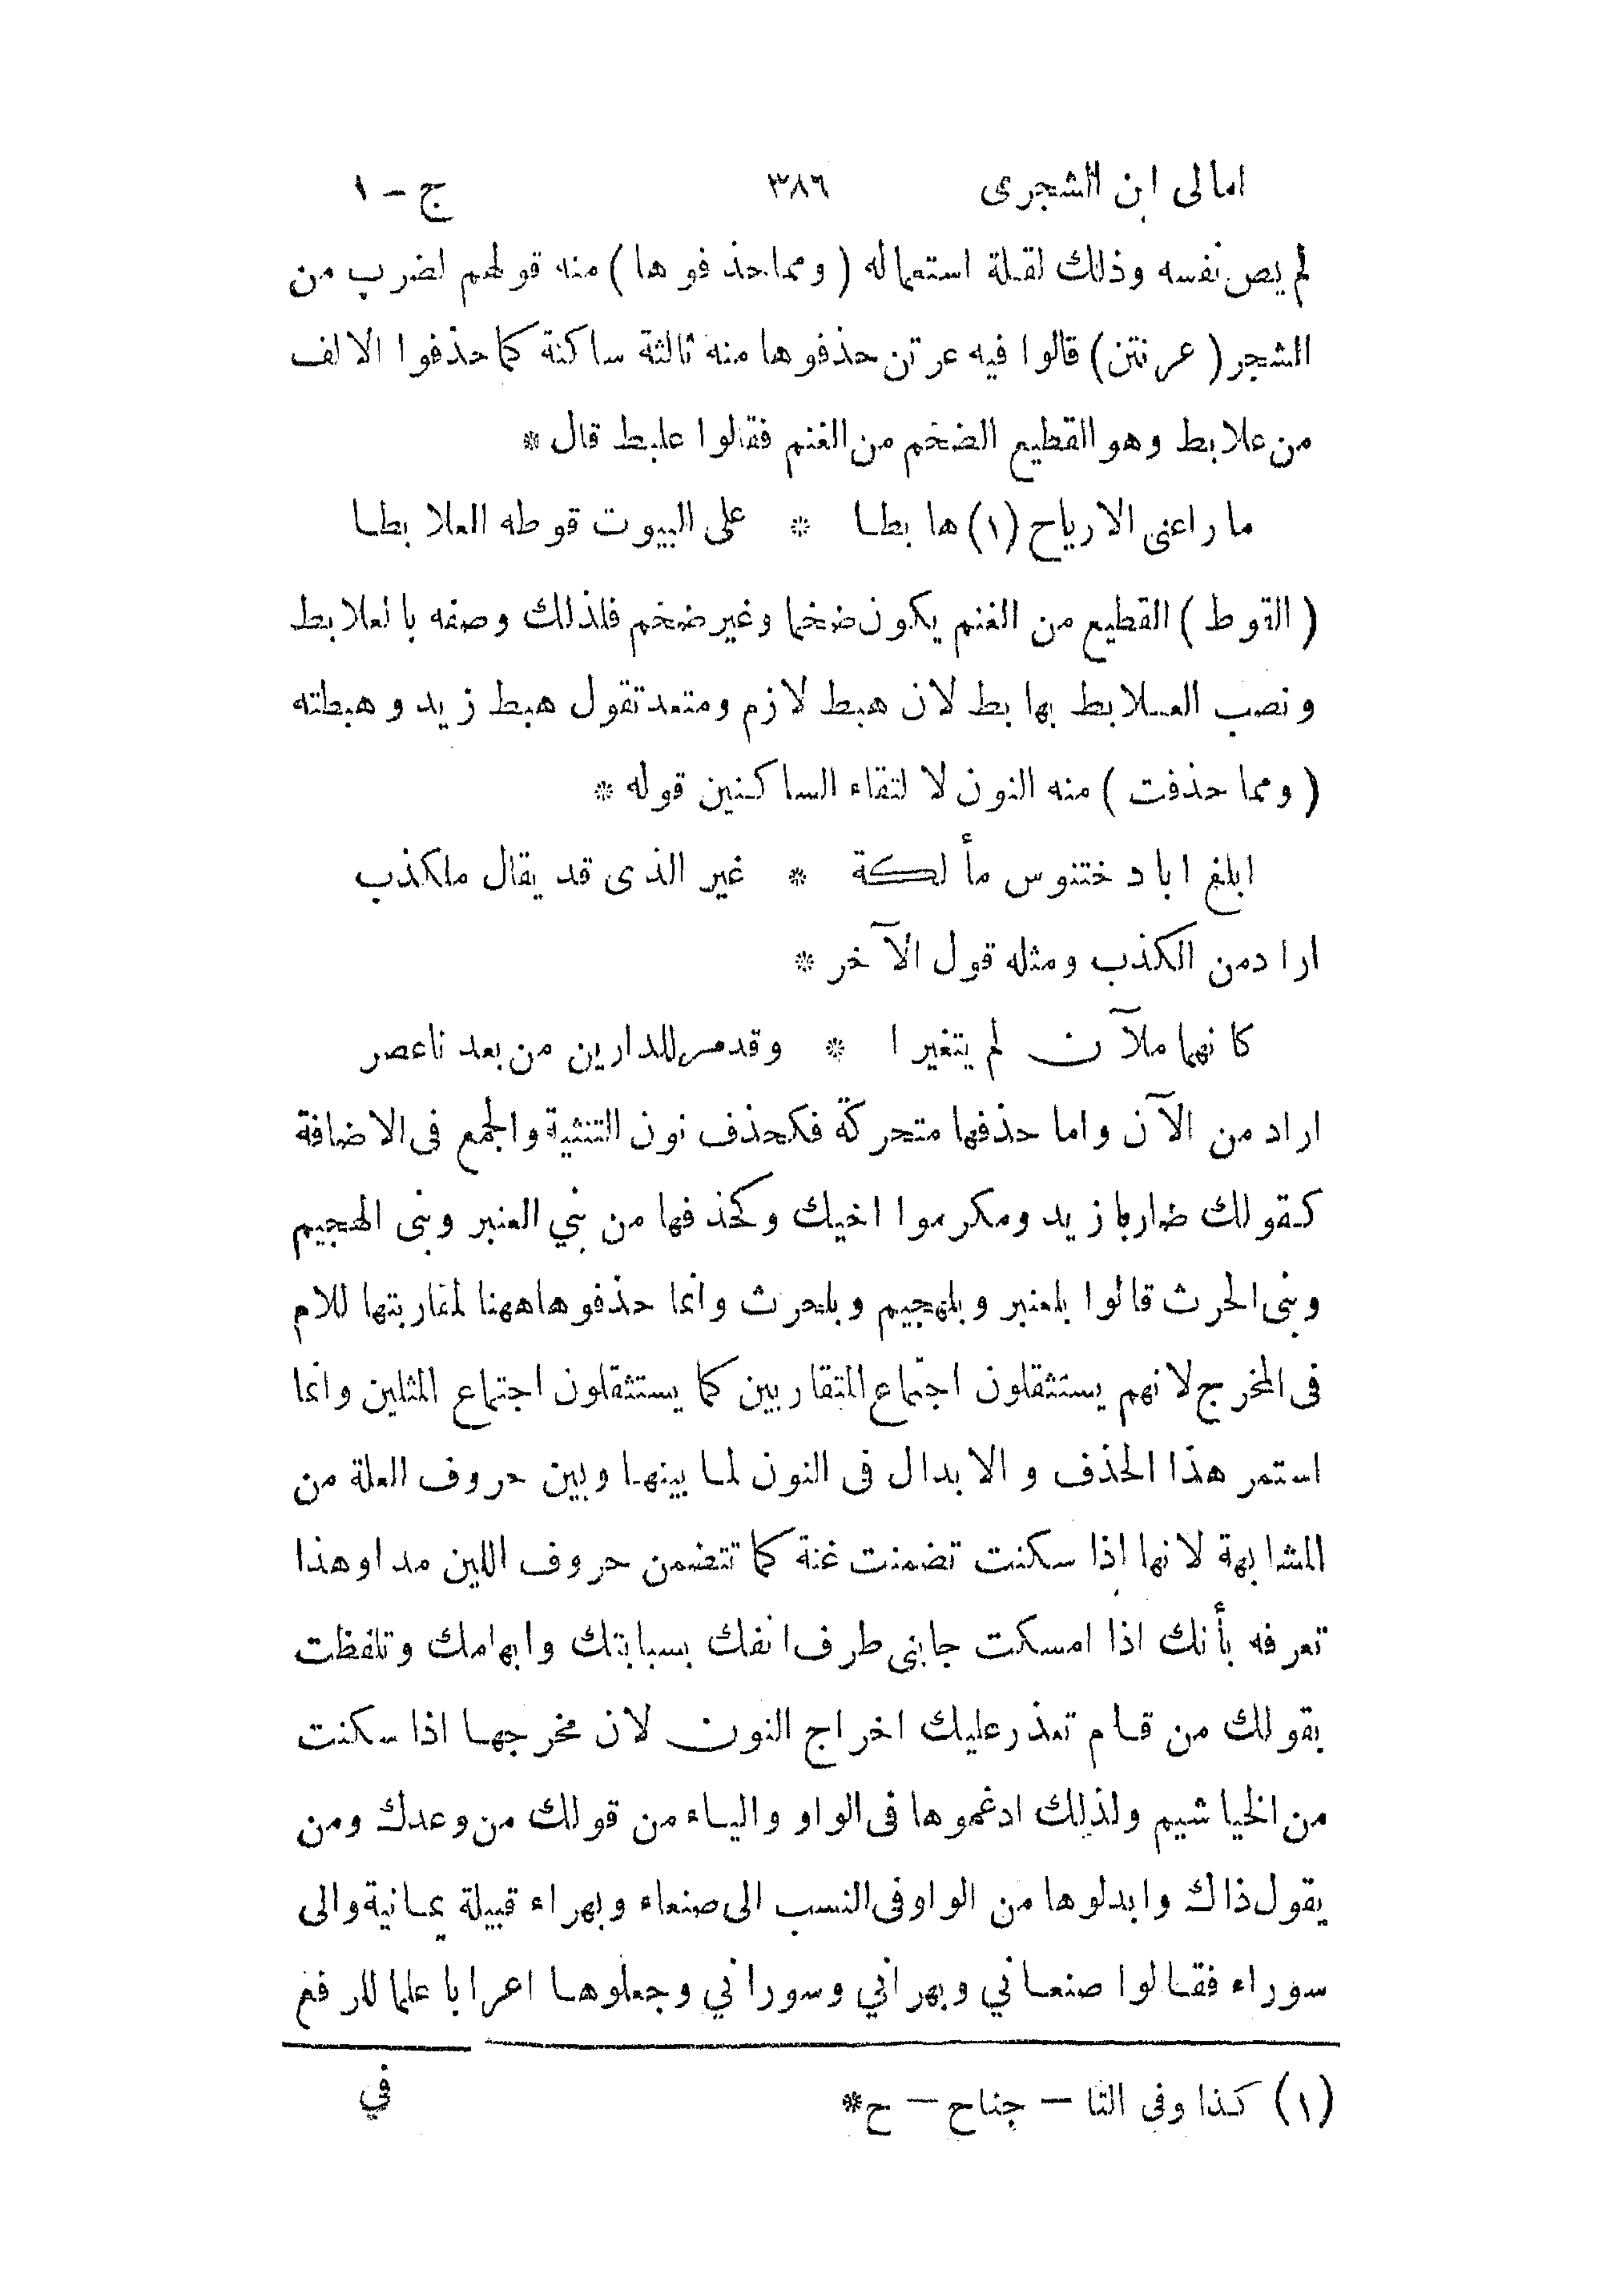 امالى ابن الشجرى ٣٨٦ ج – ١
لم يص نفسه وذلك لقلة استعماله ( ومما حذفوها ) منه قولهم لضرب من
الشجر ( عرنتن ) قالوا فيه عرتن حذفوها منه ثالثة ساكنة كما حذفوا الالف
من علابط وهو القطيع الضخم من الغنم فقالوا علبط قال *
ما راعنى الا رياح (١) هابطا * على البيوت قوطه العلابطا
( القوط ) القطيع من الغنم يكون ضخما وغير ضخم فلذلك وصفه بالعلابط
ونصب العلابط بهابط لان هبط لازم ومتعد تقول هبط زيد وهبطته
( ومما حذفت ) منه النون لالتقاء الساكنين قوله *
ابلغ ابا دختنوس مألكة * غير الذى قد يقال ملكذب
اراد من الكذب ومثله قول الآخر *
كانهما ملآن لم يتغيرا * وقد مر للدارين من بعدنا عصر
اراد من الآن واما حذفها متحركة فكحذف نون التثنية والجمع فى الاضافة
كقولك ضاربا زيد ومكرموا اخيك وكحذفها من بني العنبر وبنى الهجيم
وبنى الحرث قالوا بلعنبر وبلهجيم وبلحرث وانما حذفوها ههنا لمقاربتها للام
فى المخرج لانهم يستثقلون اجتماع المتقاربين كما يستثقلون اجتماع المثلين وانما
استمر هذا الحذف والابدال فى النون لما بينها وبين حروف العلة من
المشابهة لانها اذا سكنت تضمنت غنة كما تتضمن حروف اللين مدا وهذا
تعرفه بأنك اذا امسكت جانبى طرف انفك بسبابتك وابهامك وتلفظت
بقولك من قام تعذر عليك اخراج النون لان مخرجها اذا سكنت
من الخياشيم ولذلك ادغموها فى الواو والياء من قولك من وعدك ومن
يقول ذاك وابدلوها من الواو فى النسب الى صنعاء وبهراء قبيلة يمانية والى
سوراء فقالوا صنعاني وبهراني وسوراني وجعلوها اعرابا علما للرفع
(١) كذا وفى التا – جناح – ح*
في